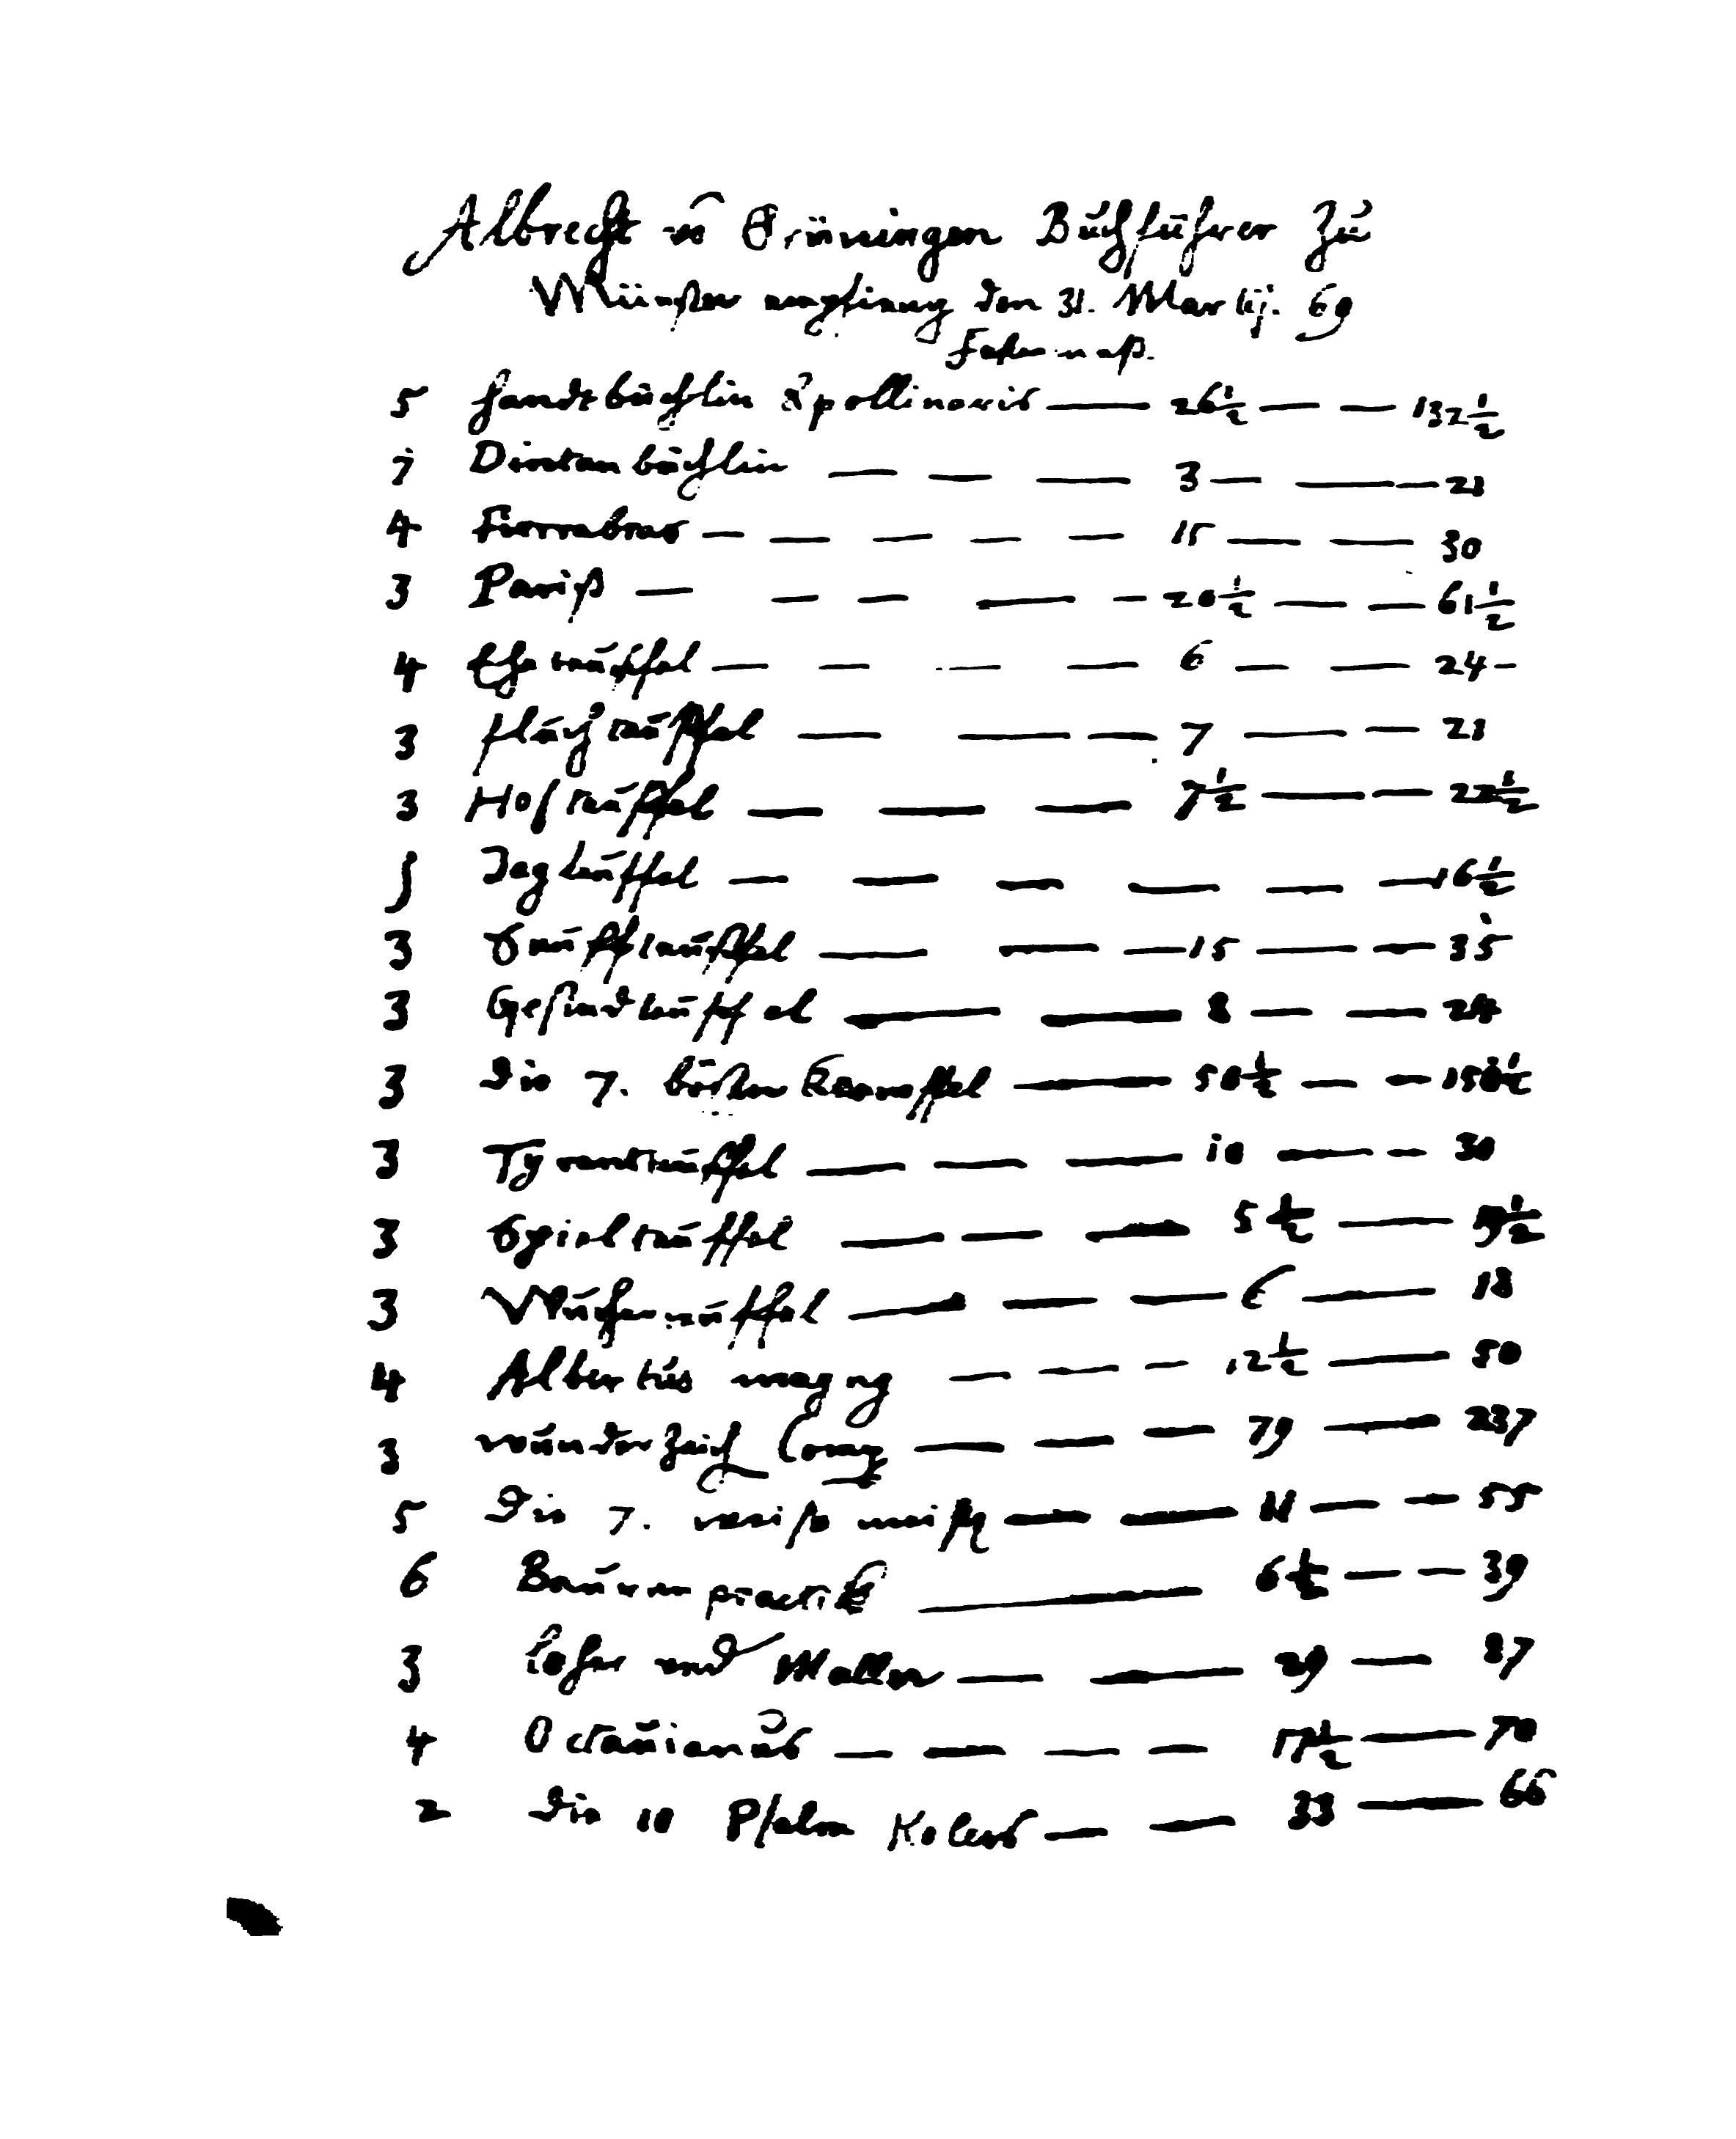 Albrecht vō Grüningen Buchfürer zu
Münster empfieng den 31. Martij. 69
Fastenmeß.
5 Handtbüchlin Apollinaris — 26½ — — 132½
7 Dintenbüchlin — — — 3 — — 21
4 Fierrabras — — — — — 15 — — 30
3 Pariß — — — — — 20½ — — 61½
4 Eheteüffel — — — — 6 — — 24 -
3 fluchteüffel — — — 7 — — 21
3 Hofteüffel — — — 7½ — — 22½
j Jagteüffel — — — — — — 16½
3 Sauffteüffel — — — 15 — — 35
3 Gesindteüffel — — 8 — — 24
3 Die 7. bösten Teüffel — 50½ — — 150½
3 Tyrantteüffel — — — 10 — — 30
3 Spielteüffel — — — 5½ — 5½
3 Wucherteüffel — — — 6 — 18
4 Albertus magnꝰ — — — 12½ — 50
3 wunderzeich — — — 79 — 237
5 Die 7. weiß meistr — — 11 — — 55
6 Bauren practik — 6½ — — 39
3 Loher und Maller — — 29 — 87
4 Octauianus — — — — 17½ — 70
2 Die 10 Psalm Kolers — — 33 — 66